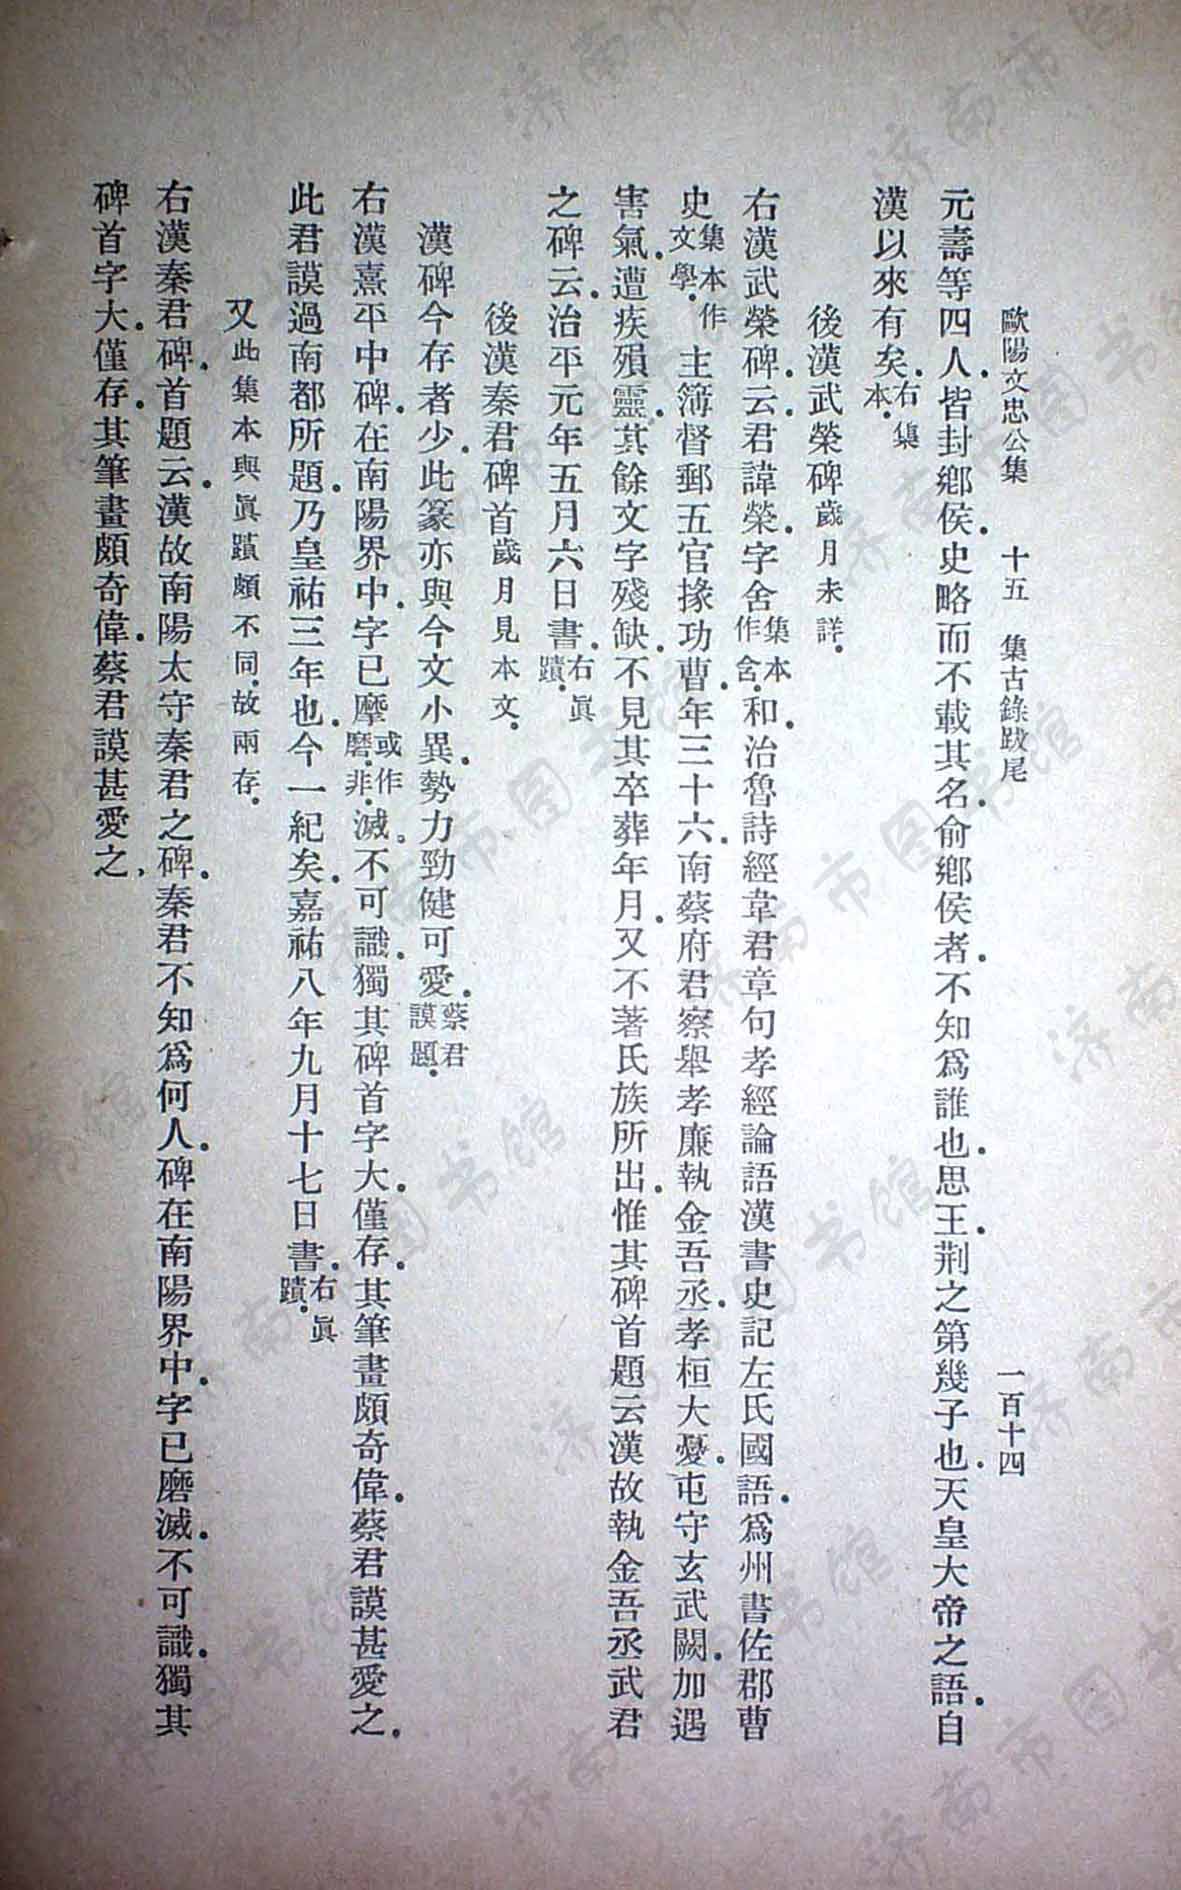 歐陽文忠公集　十五　集古錄跋尾　一百十四
元壽等四人.皆封鄉侯.史略而不載其名.俞鄉侯者.不知爲誰也.思王.荆之第幾子也.天皇大帝之語.自
漢以來有矣.右集本.
後漢武榮碑歲月未詳.
右漢武榮碑.云.君諱榮.字舍集本作含.和.治魯詩經韋君章句孝經論語漢書史記左氏國語.爲州書佐郡曹
史集本作文學.主簿督郵五官掾功曹.年三十六.南蔡府君察舉孝廉執金吾丞.孝桓大憂.屯守玄武闕.加遇
害氣.遭疾殞靈.其餘文字殘缺.不見其卒葬年月.又不著氏族所出.惟其碑首題云漢故執金吾丞武君
之碑云.治平元年五月六日書.右眞蹟.
後漢秦君碑首歲月見本文.
漢碑今存者少.此篆亦與今文小異.勢力勁健可愛.蔡君謨題.
右漢熹平中碑.在南陽界中.字已摩或作磨.非.滅.不可識.獨其碑首字大.僅存.其筆畫頗奇偉.蔡君謨甚愛之.
此君謨過南都所題.乃皇祐三年也.今一紀矣.嘉祐八年九月十七日書.右眞蹟.
又此集本與眞蹟頗不同.故兩存.
右漢秦君碑.首題云.漢故南陽太守秦君之碑.秦君不知爲何人.碑在南陽界中.字已磨滅.不可識.獨其
碑首字大.僅存.其筆畫頗奇偉.蔡君謨甚愛之.
济南市图书馆